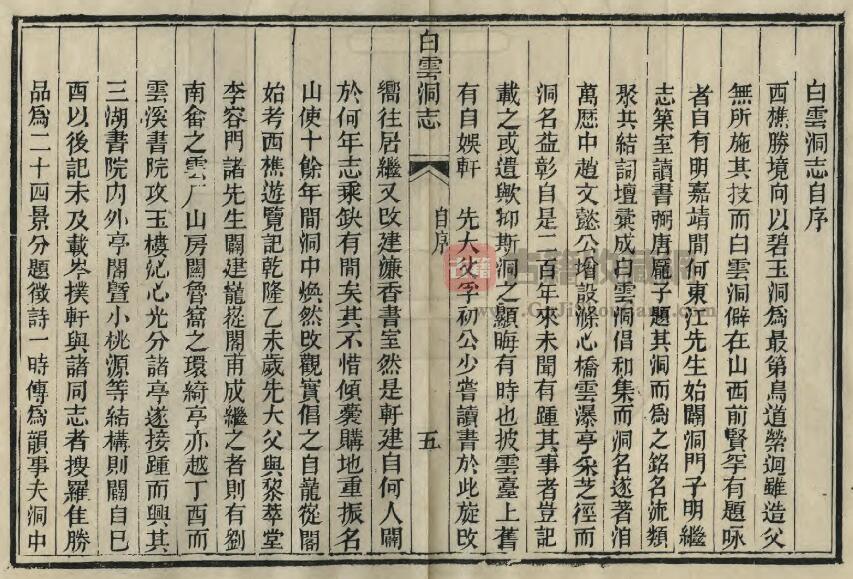 白雲洞志自序
西樵勝境向以碧玉洞爲最第鳥道縈迴雖造父
無所施其技而白雲洞僻在山西前賢罕有題咏
者自有明嘉靖間何東江先生始闢洞門子明繼
志築室讀書弼唐龐子題其洞而爲之銘名流類
聚共結詞壇彙成白雲洞倡和集而洞名遂著洎
萬歷中趙文懿公增設滌心橋雲瀑亭采芝徑而
洞名益彰自是二百年來未聞有踵其事者豈記
載之或遺歟抑斯洞之顯晦有時也披雲臺上舊
有自娛軒 先大父孚初公少嘗讀書於此旋改
白雲洞志 自序 五
嚮往居繼又改建濂香書室然是軒建自何人闢
於何年志乘缺有間矣其不惜傾囊購地重振名
山使十餘年間洞中煥然改觀實倡之自龍從閣
始考西樵遊覽記乾隆乙未歲先大父與黎萃堂
李容門諸先生闢建龍從閣甫成繼之者則有劉
南畬之雲厂山房關魯窩之環綺亭亦越丁酉而
雲溪書院攻玉樓沁心光分諸亭遂接踵而興其
三湖書院內外亭閣曁小桃源等結構則闢自巳
酉以後記未及載岑撲軒與諸同志者搜羅佳勝
品爲二十四景分題徵詩一時傳爲韻事夫洞中